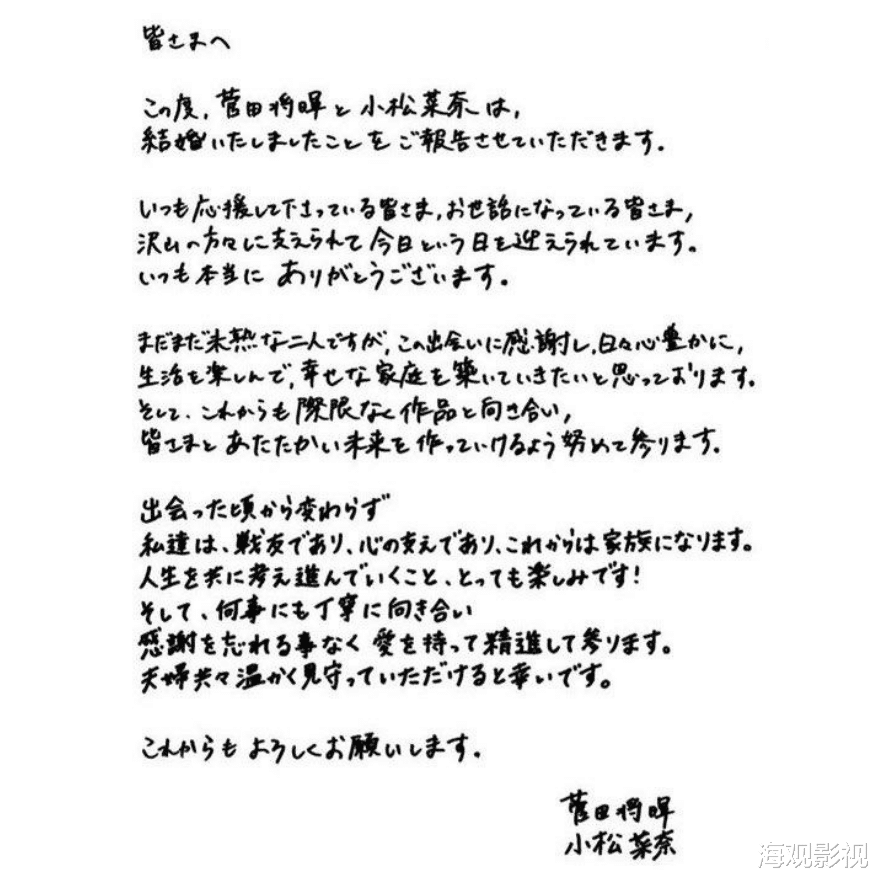 皆さまへ
この度、菅田将暉と小松菜奈は、
結婚いたしましたことをご報告させていただきます。
いつも応援して下さっている皆さま、お世話になっている皆さま、
沢山の方々に支えられて今日という日を迎えられています。
いつも本当にありがとうございます。
まだまだ未熟な二人ですが、この出会いに感謝し、日々心豊かに、
生活を楽しんで、幸せな家庭を築いていきたいと思っております。
そして、これからも際限なく作品と向き合い、
皆さまとあたたかい未来を作っていけるよう努めて参ります。
出会った頃から変わらず
私達は、戦友であり、心の支えであり、これからは家族になります。
人生を共に考え進んでいくこと、とっても楽しみです!
そして、何事にも丁寧に向き合い
感謝を忘れる事なく愛を持って精進して参ります。
夫婦共々温かく見守っていただけると幸いです。
これからもよろしくお願いします。
菅田将暉
小松菜奈
海观影视